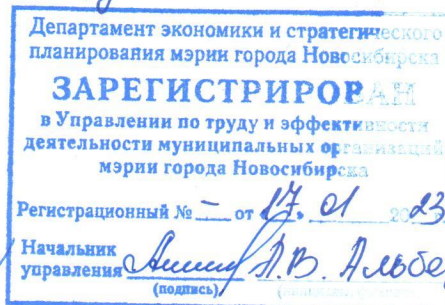 Департамент экономики и стратегического
планирования мэрии города Новосибирска
ЗАРЕГИСТРИРОВАН
в Управлении по труду и эффективности
деятельности муниципальных организаций
мэрии города Новосибирска
Регистрационный № – от 17. 01 2023
Начальник
управления А.В. Альбе
(подпись)